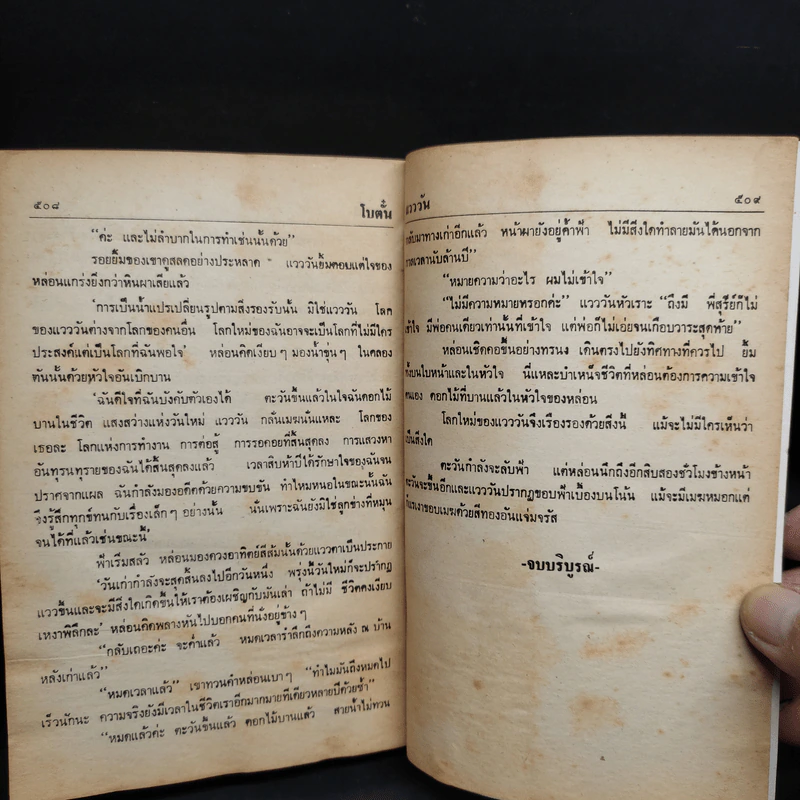 ๕๐๘ โบตั๋น
“ค่ะ และไม่ลำบากในการทำเช่นนั้นด้วย”
รอยยิ้มของเขาดูสลดอย่างประหลาด แวววันยิ้มตอบแต่ใจของ
หล่อนแกร่งยิ่งกว่าหินผาเสียแล้ว
‘การเป็นน้ำแปรเปลี่ยนรูปตามสิ่งรองรับนั้น มิใช่แวววัน โลก
ของแวววันต่างจากโลกของคนอื่น โลกใหม่ของฉันอาจจะเป็นโลกที่ไม่มีใคร
ประสงค์แต่เป็นโลกที่ฉันพอใจ’ หล่อนคิดเงียบๆ มองน้ำขุ่นๆ ในคลอง
ตันนั้นด้วยหัวใจอันเบิกบาน
‘ฉันดีใจที่ฉันบังคับตัวเองได้ ตะวันขึ้นแล้วในใจฉันดอกไม้
บานในชีวิต แสงสว่างแห่งวันใหม่ แวววัน กลั่นเมฆนั่นแหละ โลกของ
เธอละ โลกแห่งการทำงาน การต่อสู้ การรอคอยที่สิ้นสุดลง การแสวงหา
อันทุรนทุรายของฉันได้สิ้นสุดลงแล้ว เวลาสิบห้าปีได้รักษาใจของฉันจน
ปราศจากแผล ฉันกำลังมองอดีตด้วยความขบขัน ทำไหมหนอในขณะนั้นฉัน
จึงรู้สึกทุกข์ทนกับเรื่องเล็กๆ อย่างนั้น นั่นเพราะฉันยังมิใช่ลูกข่างที่หมุน
จนได้ที่แล้วเช่นขณะนี้’
ฟ้าเริ่มสลัว หล่อนมองดวงอาทิตย์สีส้มนั้นด้วยแววตาเป็นประกาย
‘วันเก่ากำลังจะสุดสิ้นลงไปอีกวันหนึ่ง พรุ่งนี้วันใหม่ก็จะปรากฏ
แววขึ้นและจะมีสิ่งใดเกิดขึ้นให้เราต้องเผชิญกับมันเล่า ถ้าไม่มี ชีวิตคงเงียบ
เหงาพิลึกละ’ หล่อนคิดพลางหันไปบอกคนที่นั่งอยู่ข้างๆ
“กลับเถอะค่ะ จะค่ำแล้ว หมดเวลารำลึกถึงความหลัง ณ บ้าน
หลังเก่าแล้ว”
“หมดเวลาแล้ว” เขาทวนคำหล่อนเบาๆ “ทำไมมันถึงหมดไป
เร็วนักนะ ความจริงยังมีเวลาในชีวิตเราอีกมากมายทีเดียวหลายปีด้วยซ้ำ”
“หมดแล้วค่ะ ตะวันขึ้นแล้ว ดอกไม้บานแล้ว สายน้ำไม่ทวน
แวววัน ๕๐๙
กลับมาทางเก่าอีกแล้ว หน้าผายังอยู่ค้ำฟ้า ไม่มีสิ่งใดทำลายมันได้นอกจาก
กาลเวลานับล้านปี”
“หมายความว่าอะไร ผมไม่เข้าใจ”
“ไม่มีความหมายหรอกค่ะ” แวววันหัวเราะ “ถึงมี พี่สุรีย์ก็ไม่
เข้าใจ มีพ่อคนเดียวเท่านั้นที่เข้าใจ แต่พ่อก็ไม่เอ่ยจนเกือบวาระสุดท้าย”
หล่อนเชิดคอขึ้นอย่างทรนง เดินตรงไปยังทิศทางที่ควรไป ยิ้ม
ทั้งบนใบหน้าและในหัวใจ นี่แหละบำเหน็จชีวิตที่หล่อนต้องการความเข้าใจ
ตนเอง ดอกไม้ที่บานแล้วในหัวใจของหล่อน
โลกใหม่ของแวววันจึงเรืองรองด้วยสิ่งนี้ แม้จะไม่มีใครเห็นว่า
เป็นสิ่งใด
ตะวันกำลังจะลับฟ้า แต่หล่อนนึกถึงอีกสิบสองชั่วโมงข้างหน้า
ตะวันจะขึ้นอีกและแวววันปรากฏขอบฟ้าเบื้องบนโน้น แม้จะมีเมฆหมอกแต่
ก็แรเงาขอบเมฆด้วยสีทองอันแจ่มจรัส
-จบบริบูรณ์-